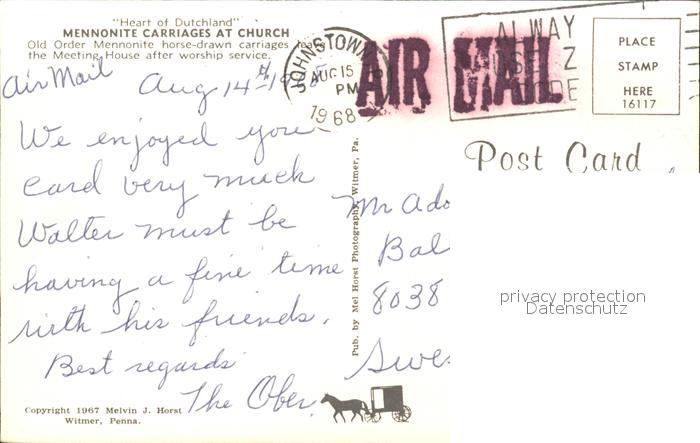 "Heart of Dutchland"
MENNONITE CARRIAGES AT CHURCH
Old Order Mennonite horse-drawn carriages
the Meeting House after worship service.
Air Mail
Aug 14th 1968
We enjoyed your
card very much
Walter must be
having a fine time
with his friends.
Best regards
The Ober
Copyright 1967 Melvin J. Horst
Witmer, Penna.
Pub. by Mel Horst Photography, Witmer, Pa.
JOHNSTOWN
AUG 15
PM
1968
AIR MAIL
ALWAY
USE Z
DE
PLACE
STAMP
HERE
16117
Post Card
Mr Ado
Bal
8038
Swe
privacy protection
Datenschutz